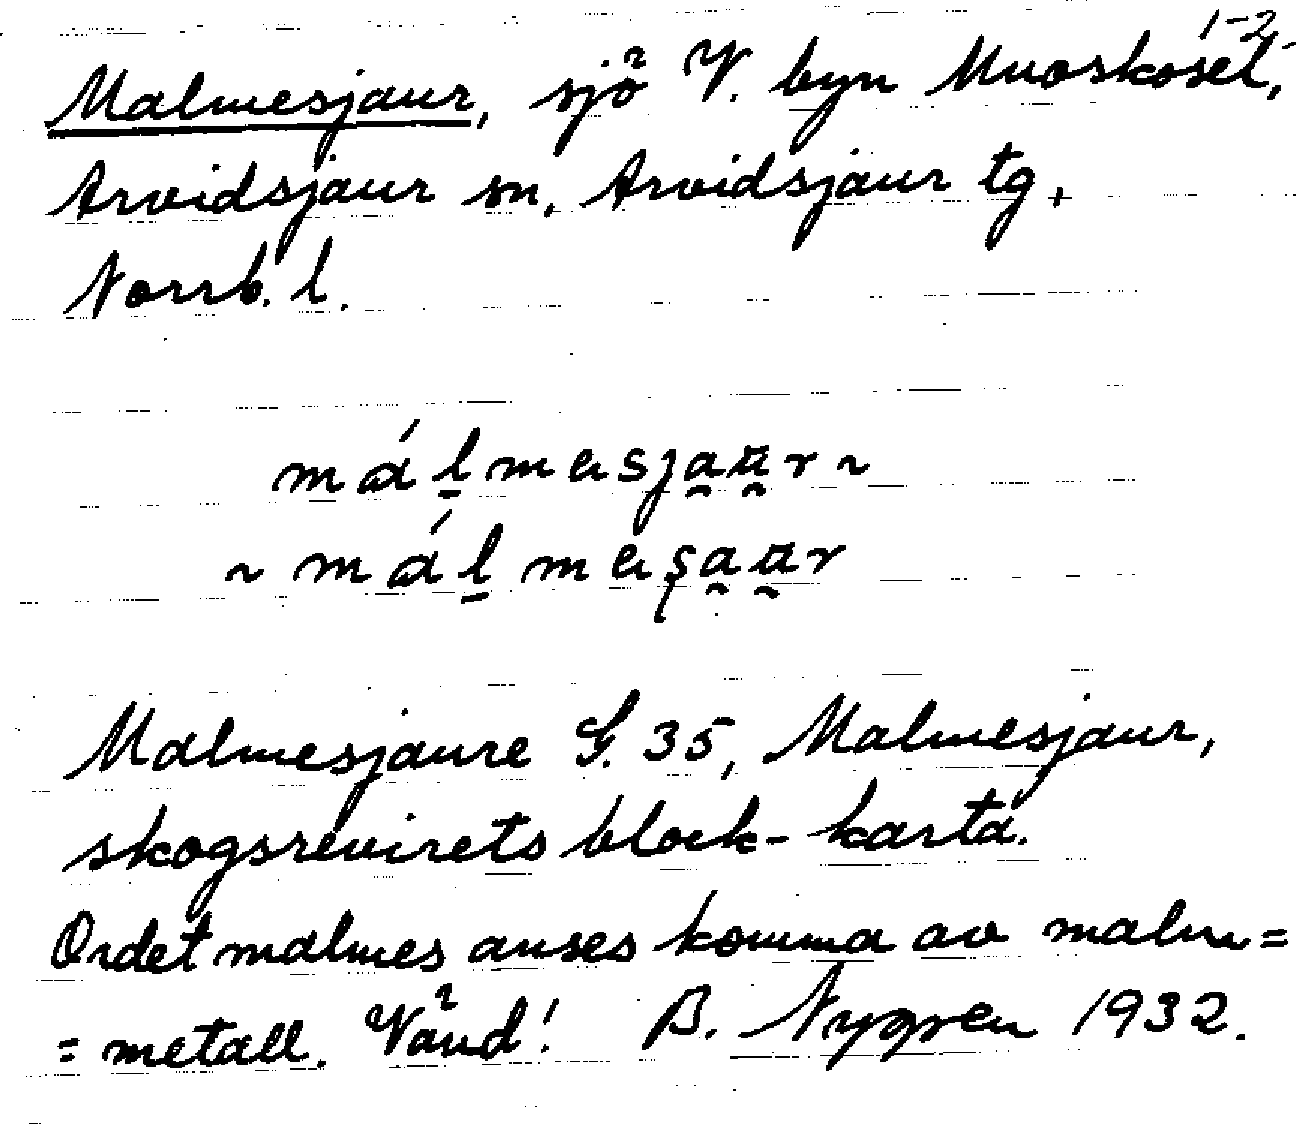 1-2
Malmesjaur, sjö V. byn Muoskosel,
Arvidsjaur sn, Arvidsjaur tg,
Norrb. l.
~
~
Malmesjaure G. 35, Malmesjaur,
skogsrevirets block-karta.
Ordet malmes anses komma av malm=
=metall. Vänd! B. Nygren 1932.